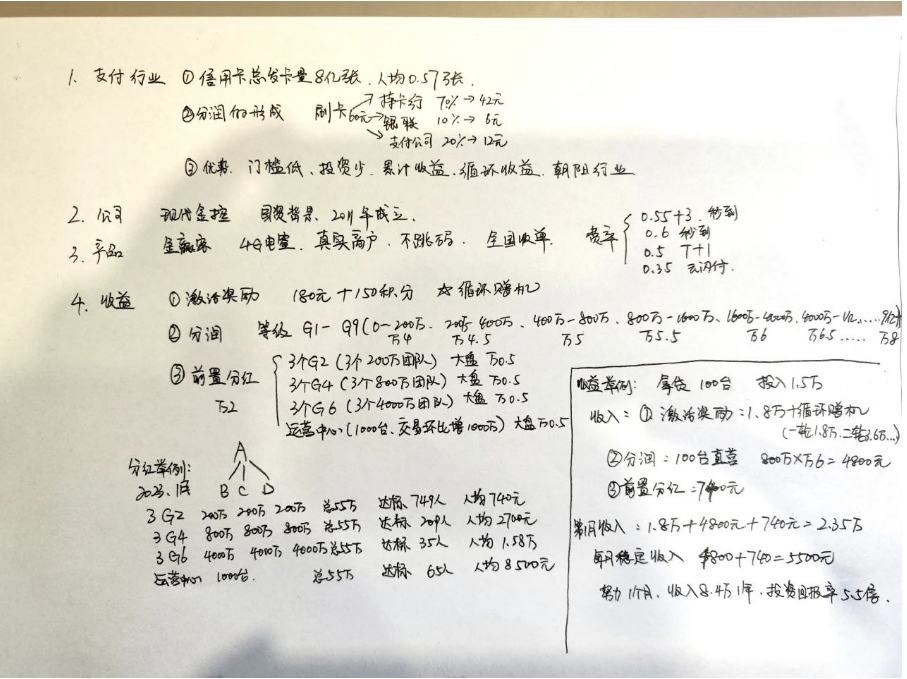 1. 支付行业 ①信用卡总发卡量8亿张、人均0.57张.
②分润的形成 刷卡60元→ 持卡行 70%→42元
银联 10%→6元
支付公司 20%→12元
③优势. 门槛低、投资少、累计收益、循环收益、朝阳行业
2. 公司 现代金控 国资背景、2011年成立.
3. 产品 金融客 4G电签、真实商户、不跳码、全国收单. 费率
0.55+3. 秒到
0.6 秒到
0.5 T+1
0.35 云闪付.
4. 收益 ①激活奖励 180元+150积分 ☆循环赠机
②分润 等级 G1-G9(0-200万、200万-400万、400万-800万、800万-1600万、1600万-4000万、4000万-1亿......9亿+
万4 万4.5 万5 万5.5 万6 万6.5 ..... 万8
③前置分红
万2
3个G2(3个200万团队) 大盘 万0.5
3个G4(3个800万团队) 大盘 万0.5
3个G6(3个4000万团队) 大盘 万0.5
运营中心(1000台、交易环比增1000万) 大盘万0.5
分红举例:
2023.1月
A
B C D
3 G2 200万 200万 200万 总55万 达标 749人 人均740元
3 G4 800万 800万 800万 总55万 达标 209人 人均2700元
3 G6 4000万 4000万 4000万 总55万 达标 35人 人均1.58万
运营中心 1000台. 总55万 达标 65人 人均8500元
收益举例: 拿货100台 投入1.5万
收入: ①激活奖励:1.8万+循环赠机
(一轮1.8万.二轮3.6万...)
②分润:100台直营 800万×万6=4800元
③前置分红:740元
第1月收入:1.8万+4800元+740元=2.35万
每月稳定收入 4800+740=5500元
努力1个月、收入8.4万1年、投资回报率5.5倍.